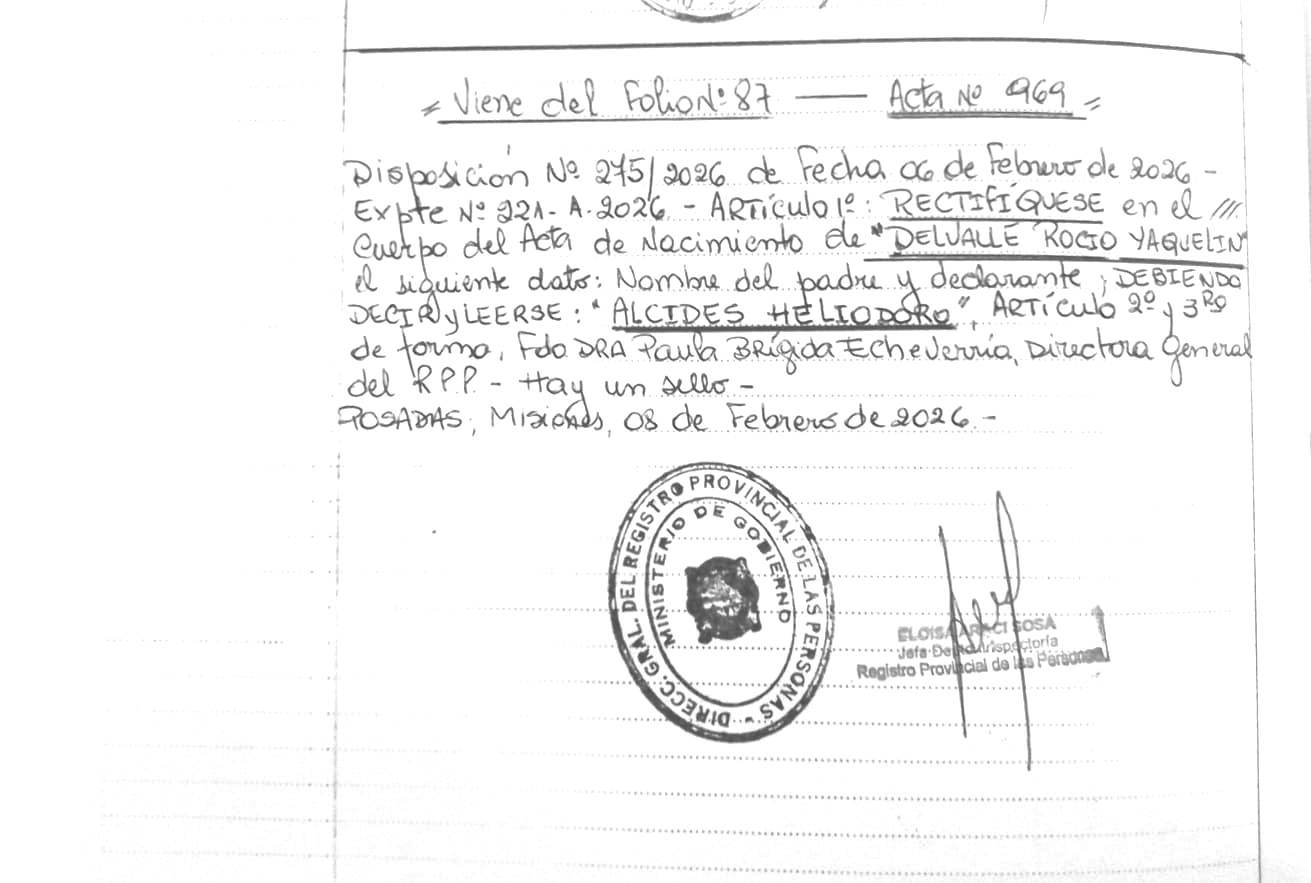 " Viene del Folio Nº 87 — Acta Nº 969 "
Disposición Nº 275/2026 de Fecha 06 de Febrero de 2026 -
Expte Nº 221- A. 2026 - ARTículo 1º: RECTIFÍQUESE en el ///
Cuerpo del Acta de Nacimiento de "DELVALLE ROCIO YAQUELIN"
el siguiente dato: Nombre del padre y declarante, DEBIENDO
DECIR y LEERSE: "ALCIDES HELIODORO", ARTículo 2º y 3RO
de forma, Fdo DRA Paula BRígida EcheVerría, Directora General
del RPP - Hay un sello -
POSADAS, Misiones, 08 de Febrero de 2026.-
DIRECC. GRAL. DEL REGISTRO PROVINCIAL DE LAS PERSONAS -
MINISTERIO DE GOBIERNO
ELOISA ARACI SOSA
Jefa Inspectoría
Registro Provincial de las Personas